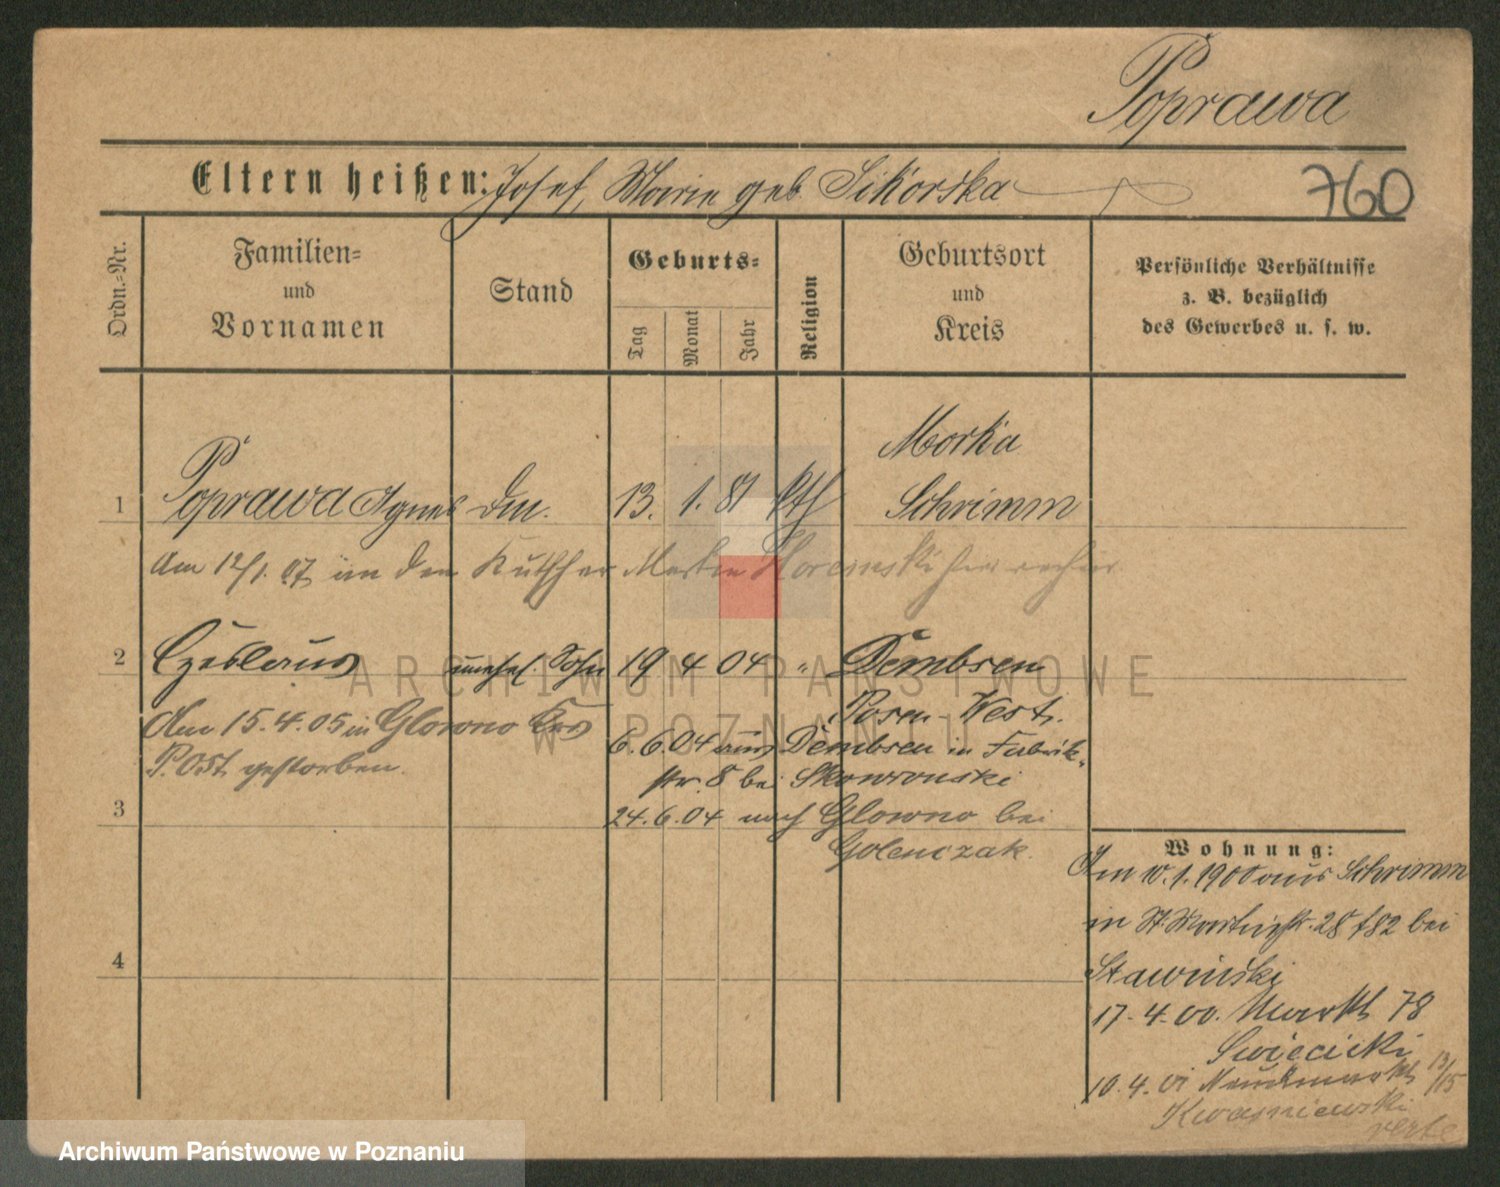 Poprawa
Eltern heißen: Josef, Marie geb. Sikorska
760
Ordn.-Nr.
Familien- und Vornamen
Stand
Geburts-
Tag
Monat
Jahr
Religion
Geburtsort und Kreis
Persönliche Verhältnisse z. B. bezüglich des Gewerbes u. s. w.
Morka
1 Poprawa Agnes 13. 1. 81 kth Schrimm
Am 12/1. 07 den Kutscher
2 Czeslaus unehel. Sohn 19 4 04 " Dembsen
Posen-West.
Am 15.4.05 in Glowno
P. Ost gestorben.
6.6.04 aus Dembsen in Fabrik-
str. 8 bei Skowronski
3
24.6.04 nach Glowno bei
Golenczak.
4
Wohnung:
Am 10.1.1900 aus Schrimm
in St. Martinstr. 28 bei
Stawinski
17.4.00. Markt 78
Swiecicki
10.4.01 Neuer Markt 13/15
Kwasniewski
verte
ARCHIWUM PAŃSTWOWE
W POZNANIU
Archiwum Państwowe w Poznaniu